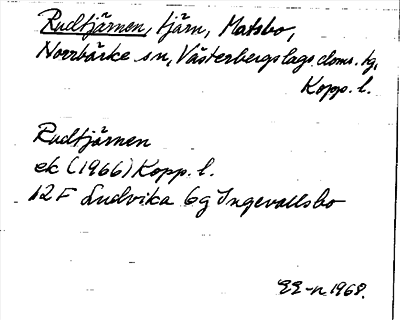 Rudtjärnen, tjärn, Matsbo,
Norrbärke sn, Västerbergslags doms. tg,
Kopp. l.
Rudtjärnen
ek (1966) Kopp. l.
12F Ludvika 6g Ingevallsbo
EE-n 1968.